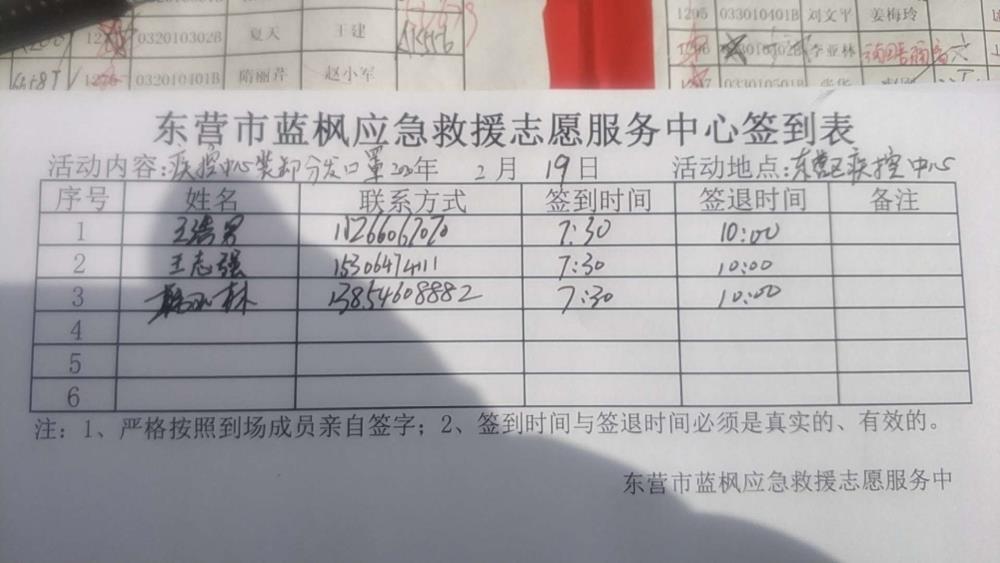 032010302B 夏天 王建
032010401B 隋丽芹 赵小军
1295 033010401B 刘文平 姜梅玲
李亚林
东营市蓝枫应急救援志愿服务中心签到表
活动内容:疾控中心装卸分发口罩2020年 2 月 19 日 活动地点:东营区疾控中心
序号 姓名 联系方式 签到时间 签退时间 备注
1 王浩男 7:30 10:00
2 王志强 15306474111 7:30 10:00
3 13854608882 7:30 10:00
4
5
6
注:1、严格按照到场成员亲自签字;2、签到时间与签退时间必须是真实的、有效的。
东营市蓝枫应急救援志愿服务中